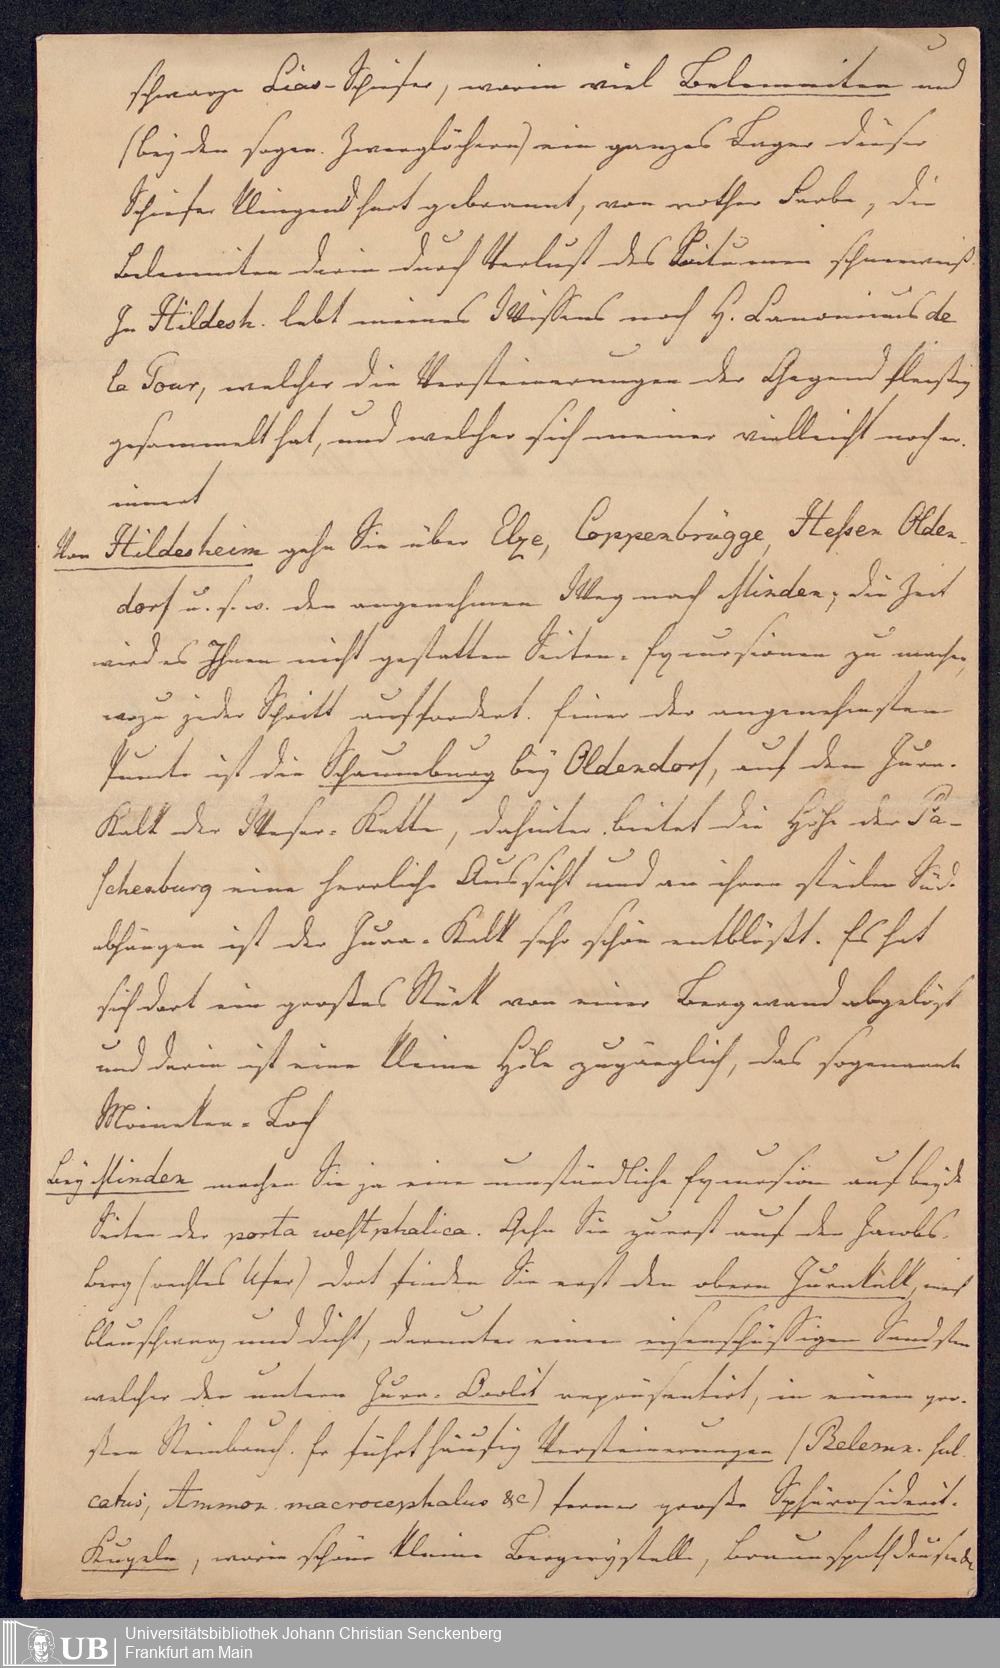 schwarze Lias-Schiefer, worin viel Belemniten und
(bey den sogen. Zwerglöchern) ein ganzes Lager dieser
Schiefer klingend hart gebrannt, von rother Farbe, die
Belemniten darin durch Verlust des Bitumen schneeweiß.
In Hildesh. lebt meines Wissens noch H. Canonicus de
la Tour, welcher die Versteinerungen der Gegend fleißig
gesammelt hat, und welcher sich meiner vielleicht noch er-
innert
Von Hildesheim gehn Sie über Elze, Coppenbrügge, Heßen Olden-
dorf u. s. w. den angenehmen Weg nach Minden; die Zeit
wird es Ihnen nicht gestatten Seiten-Excursionen zu machen,
wozu jeder Schritt auffordert. Einer der angenehmsten
Puncte ist die Schaumburg bey Oldendorf, auf dem Jura-
Kalk der Weser-Kette, dahinter bietet die Höhe der Pa-
schenburg eine herrliche Aussicht und an ihren steilen Süd-
abhängen ist der Jura-Kalk sehr schön entblößt. Es hat
sich dort ein großes Stück von einer Bergwand abgelöst
und darin ist eine kleine Höle zugänglich, das sogenannte
Moineken-Loch
Bey Minden machen Sie ja eine umständliche Excursion auf beyde
Seiten der porta westphalica. Gehn Sie zuerst auf den Jacobs-
berg (rechtes Ufer) dort finden Sie erst den obern Jurakalk, meist
blauschwarz und dicht, darunter einen eisenschüssigen Sandstein
welcher den untern Jura-Oolit repräsentirt, in einem gro-
ßen Steinbruch. Er führt häufig Versteinerungen (Belemn. sul-
catus, Ammon. macrocephalus &c) ferner große Sphärosiderit-
Kugeln, worin schöne kleine Bergcrystalle, Braunspathdrusen &c
UB
Universitätsbibliothek Johann Christian Senckenberg
Frankfurt am Main